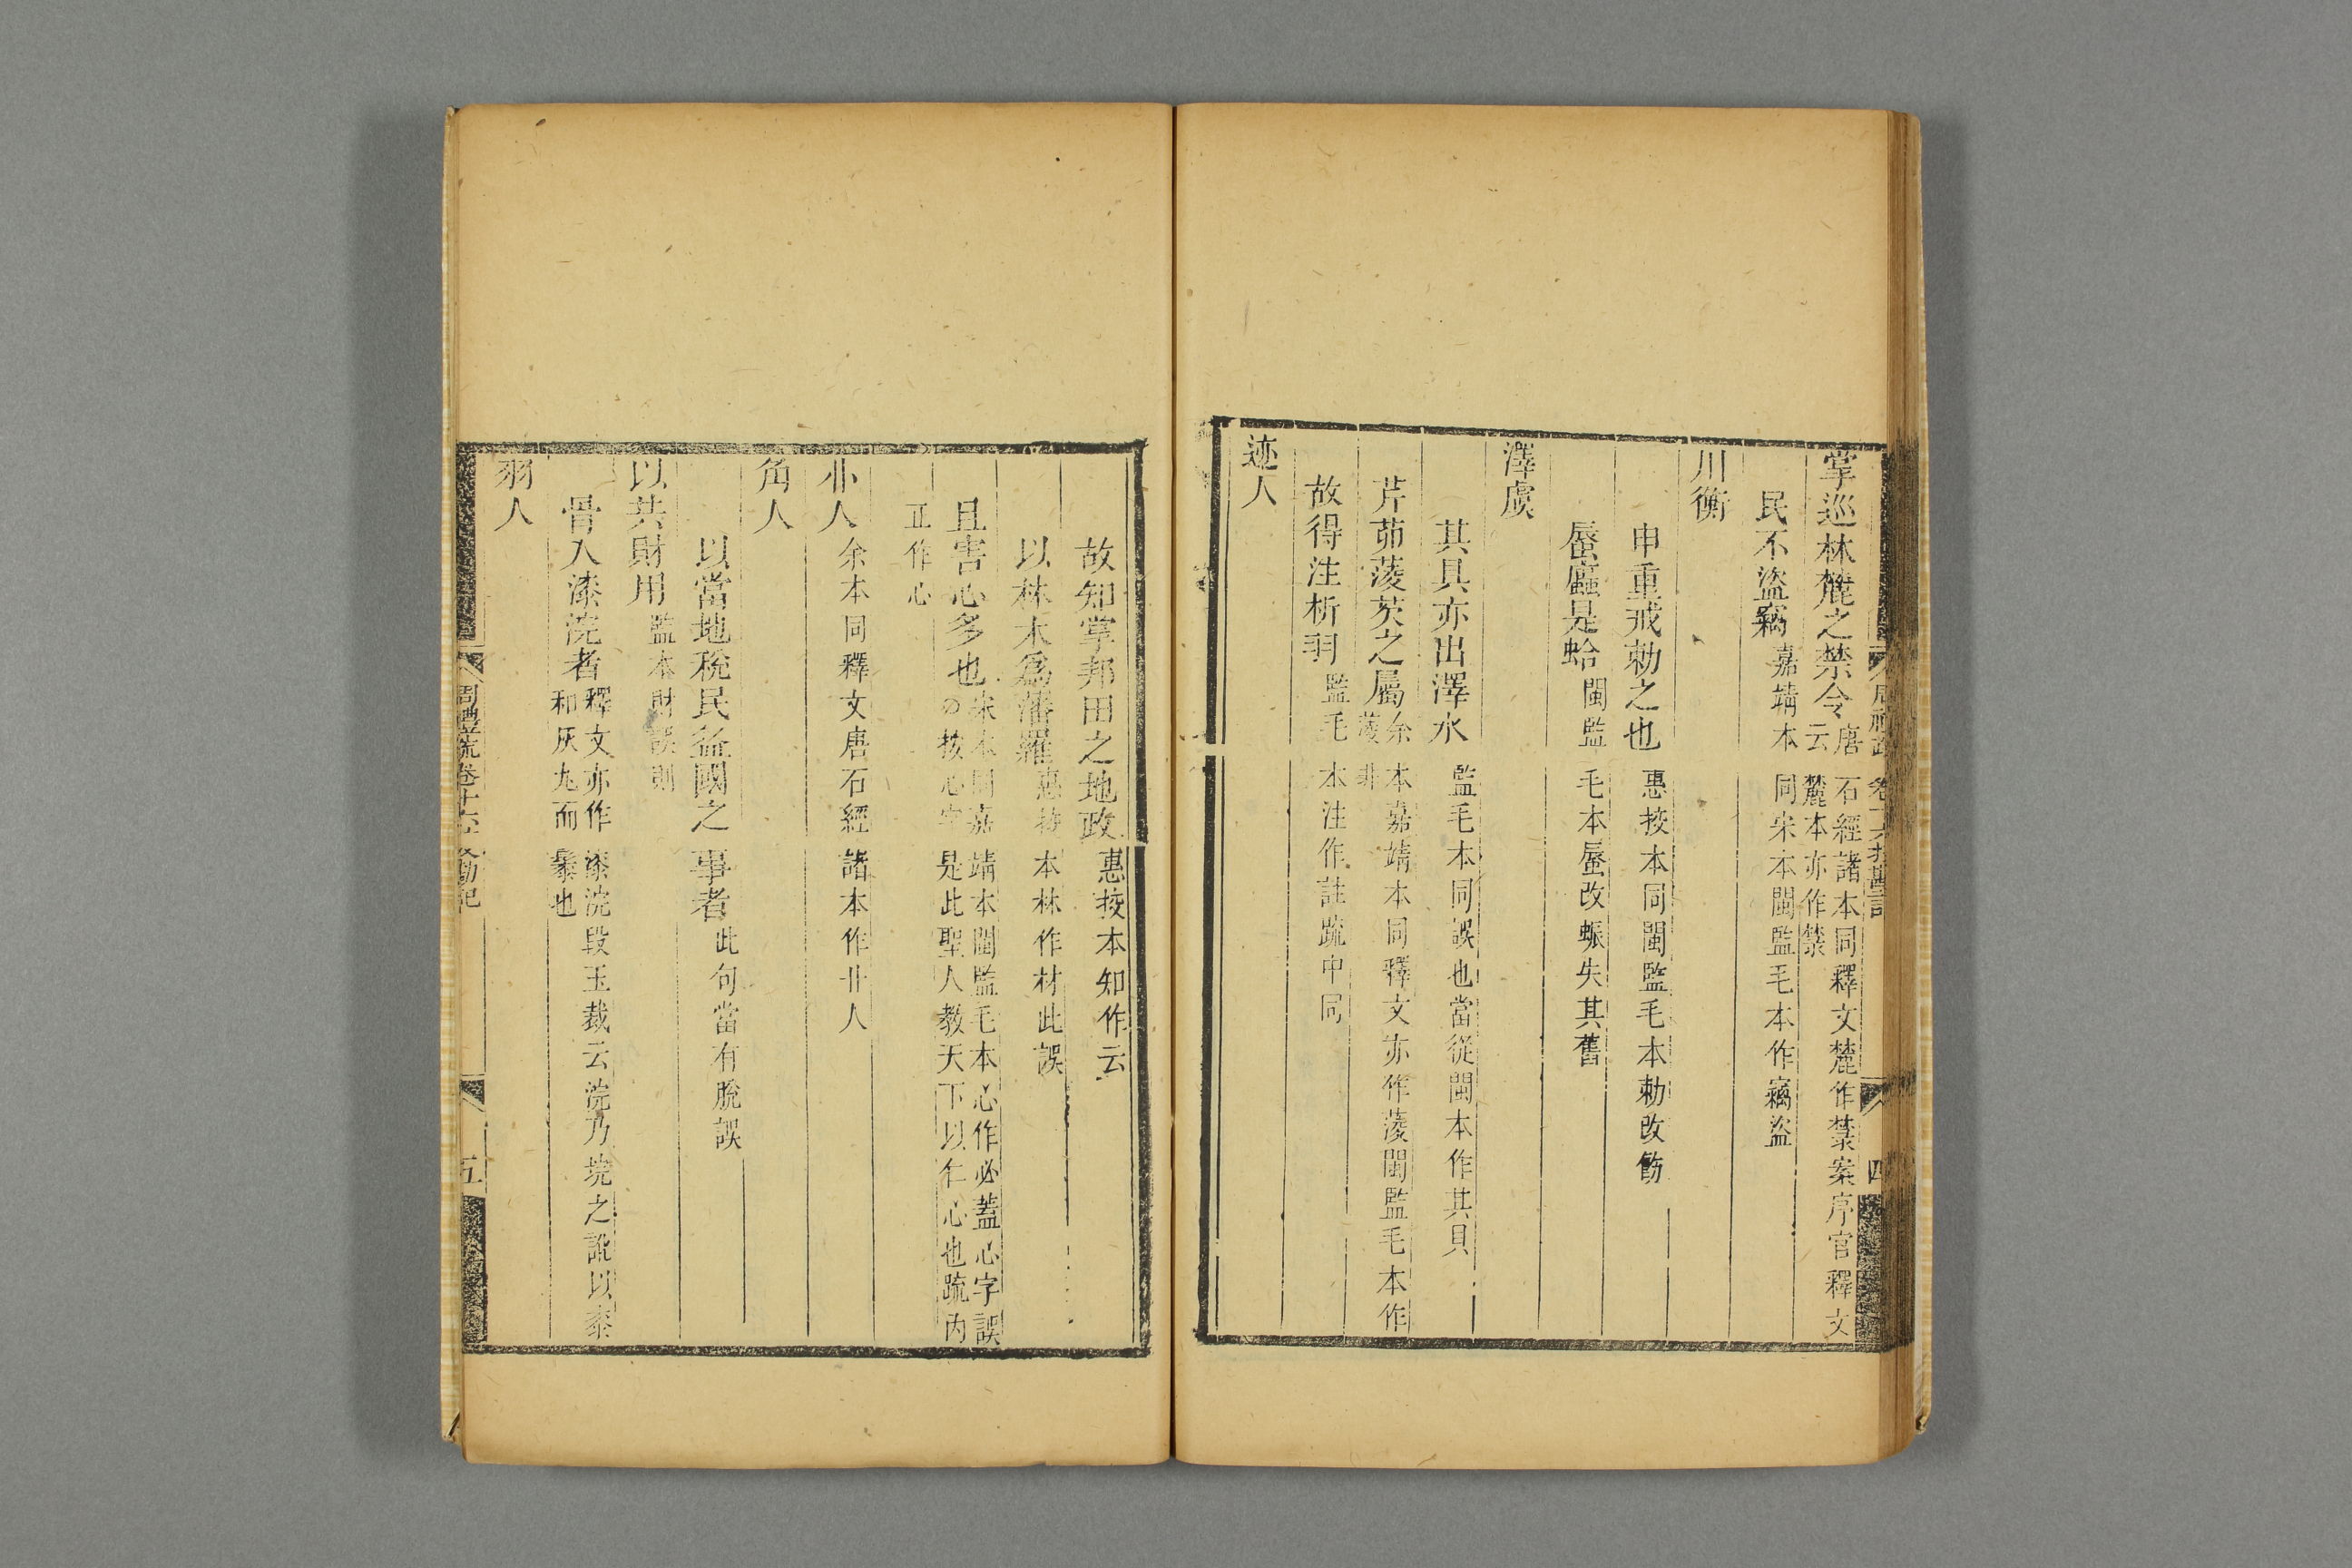 掌巡林麓之禁令唐石經諸本同釋文麓作䔍案序官釋文
云麓本亦作䔍
民不盜竊嘉靖本同宋本閩監毛本作竊盜
川衡
申重戒勑之也惠挍本同閩監毛本勑改飭
蜃䗯是蛤閩監毛本蜃改蜄失其舊
澤虞
其具亦出澤水監毛本同誤也當從閩本作其貝
芹茆蓤芡之屬余本嘉靖本同釋文亦作蓤閩監毛本作
菱非
故得注析羽監毛本注作註疏中同
迹人
故知掌邦田之地政惠挍本知作云
以林木爲藩羅惠挍本林作材此誤
且害心多也宋本同嘉靖本閩監毛本心作必蓋心字誤
○按心字是此聖人教天下以仁心也疏內
正作心
丱人余本同釋文唐石經諸本作卝人
角人
以當地稅民益國之事者此句當有脫誤
以共財用監本財誤則
骨入漆浣者釋文亦作漆浣段玉裁云浣乃垸之訛以桼
和灰丸而髤也
羽人
周禮疏卷十六挍勘記
五
四